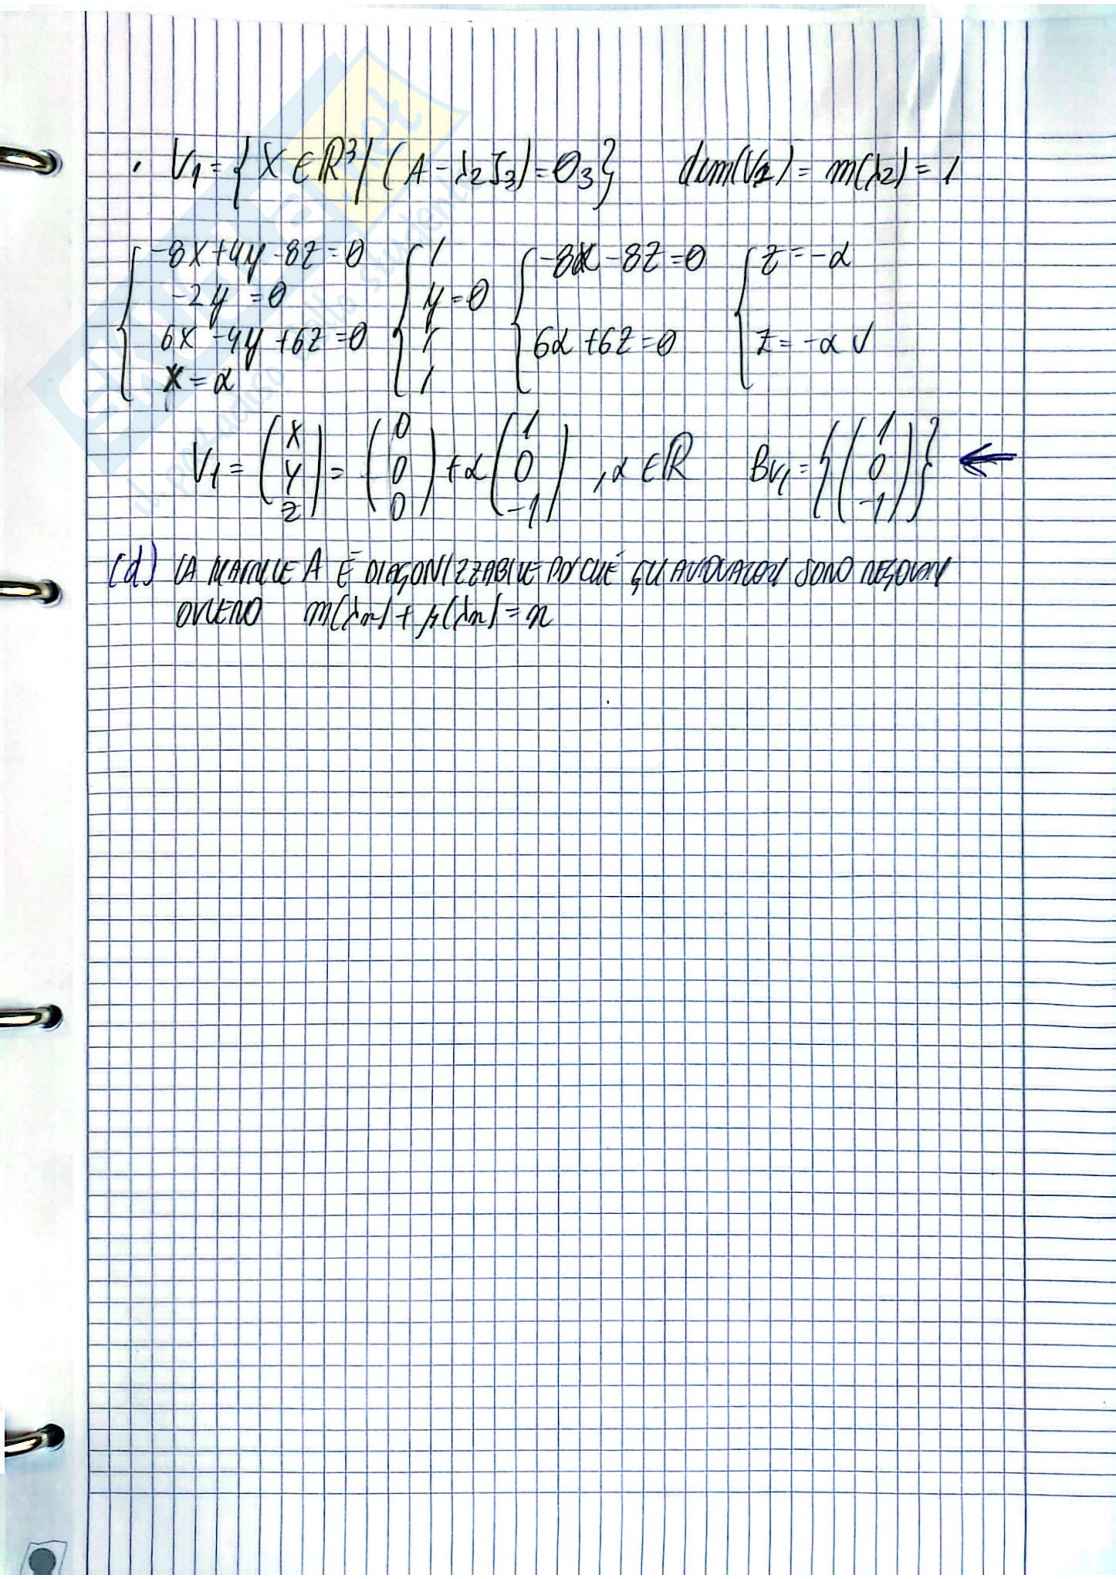 . V₁ = { X ∈ ℝ³ | (A - λ₂I₃) = 0₃ }   dim(V₁) = m(λ₂) = 1
{ -8x+4y-8z=0   { /   { -8α-8z=0   { z=-α
-2y=0   y=0
6x-4y+6z=0   /   6α+6z=0   z=-α √
x=α   /
V₁ = (x y z) = (0 0 0) + α (1 0 -1) , α ∈ ℝ   Bv₁ = { (1 0 -1) } ←
(d) LA MATRICE A È DIAGONIZZABILE POICHÉ GLI AUTOVALORI SONO REGOLARI
OVVERO m(λn) + μ(λn) = n